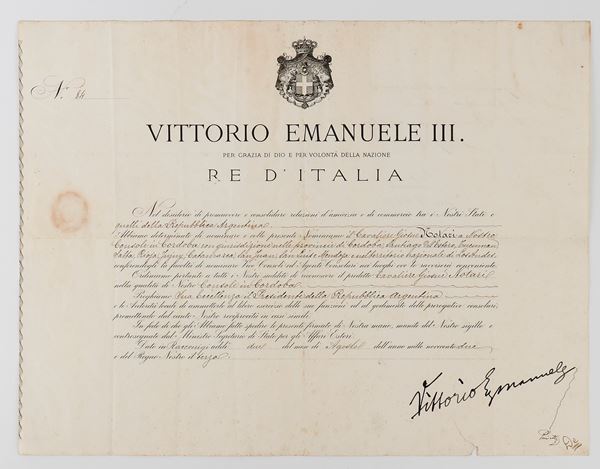 N.º 84
VITTORIO EMANUELE III.
PER GRAZIA DI DIO E PER VOLONTÀ DELLA NAZIONE
RE D'ITALIA
Nel desiderio di promuovere e consolidare relazioni d'amicizia e di commercio tra i Nostri Stati e
quelli della Repubblica Argentina
Abbiamo determinato di nominare e colle presenti Nominiamo il Cavaliere Giosuè Notari a Nostro
Console in Cordoba con giurisdizione nelle provincie di Cordoba, Santiago del Estero, Tucuman
Salta, Rioja, Jujuy, Catamarca, San Juan, San Luis, Mendoza e nel territorio nazionale de Los Andes
conferendogli la facoltà di nominare Vice Consoli ed Agenti Consolari nei luoghi ove lo ravviserà conveniente.
Ordiniamo pertanto a tutti i Nostri sudditi di riconoscere il predetto Cavaliere Giosuè Notari
nella qualità di Nostro Console in Cordoba
Preghiamo Sua Eccellenza il Presidente della Repubblica Argentina
e le Autorità locali di ammetterlo al libero esercizio delle sue funzioni ed al godimento delle prerogative consolari,
promettendo dal canto Nostro reciprocità in casi simili.
In fede di che gli Abbiamo fatto spedire le presenti firmate di Nostra mano, munite del Nostro sigillo e
contrassegnate dal Ministro Segretario di Stato per gli Affari Esteri.
Dato in Racconigi addì due del mese di Agosto dell'anno mille novecento due
e del Regno Nostro il terzo
Vittorio Emanuele